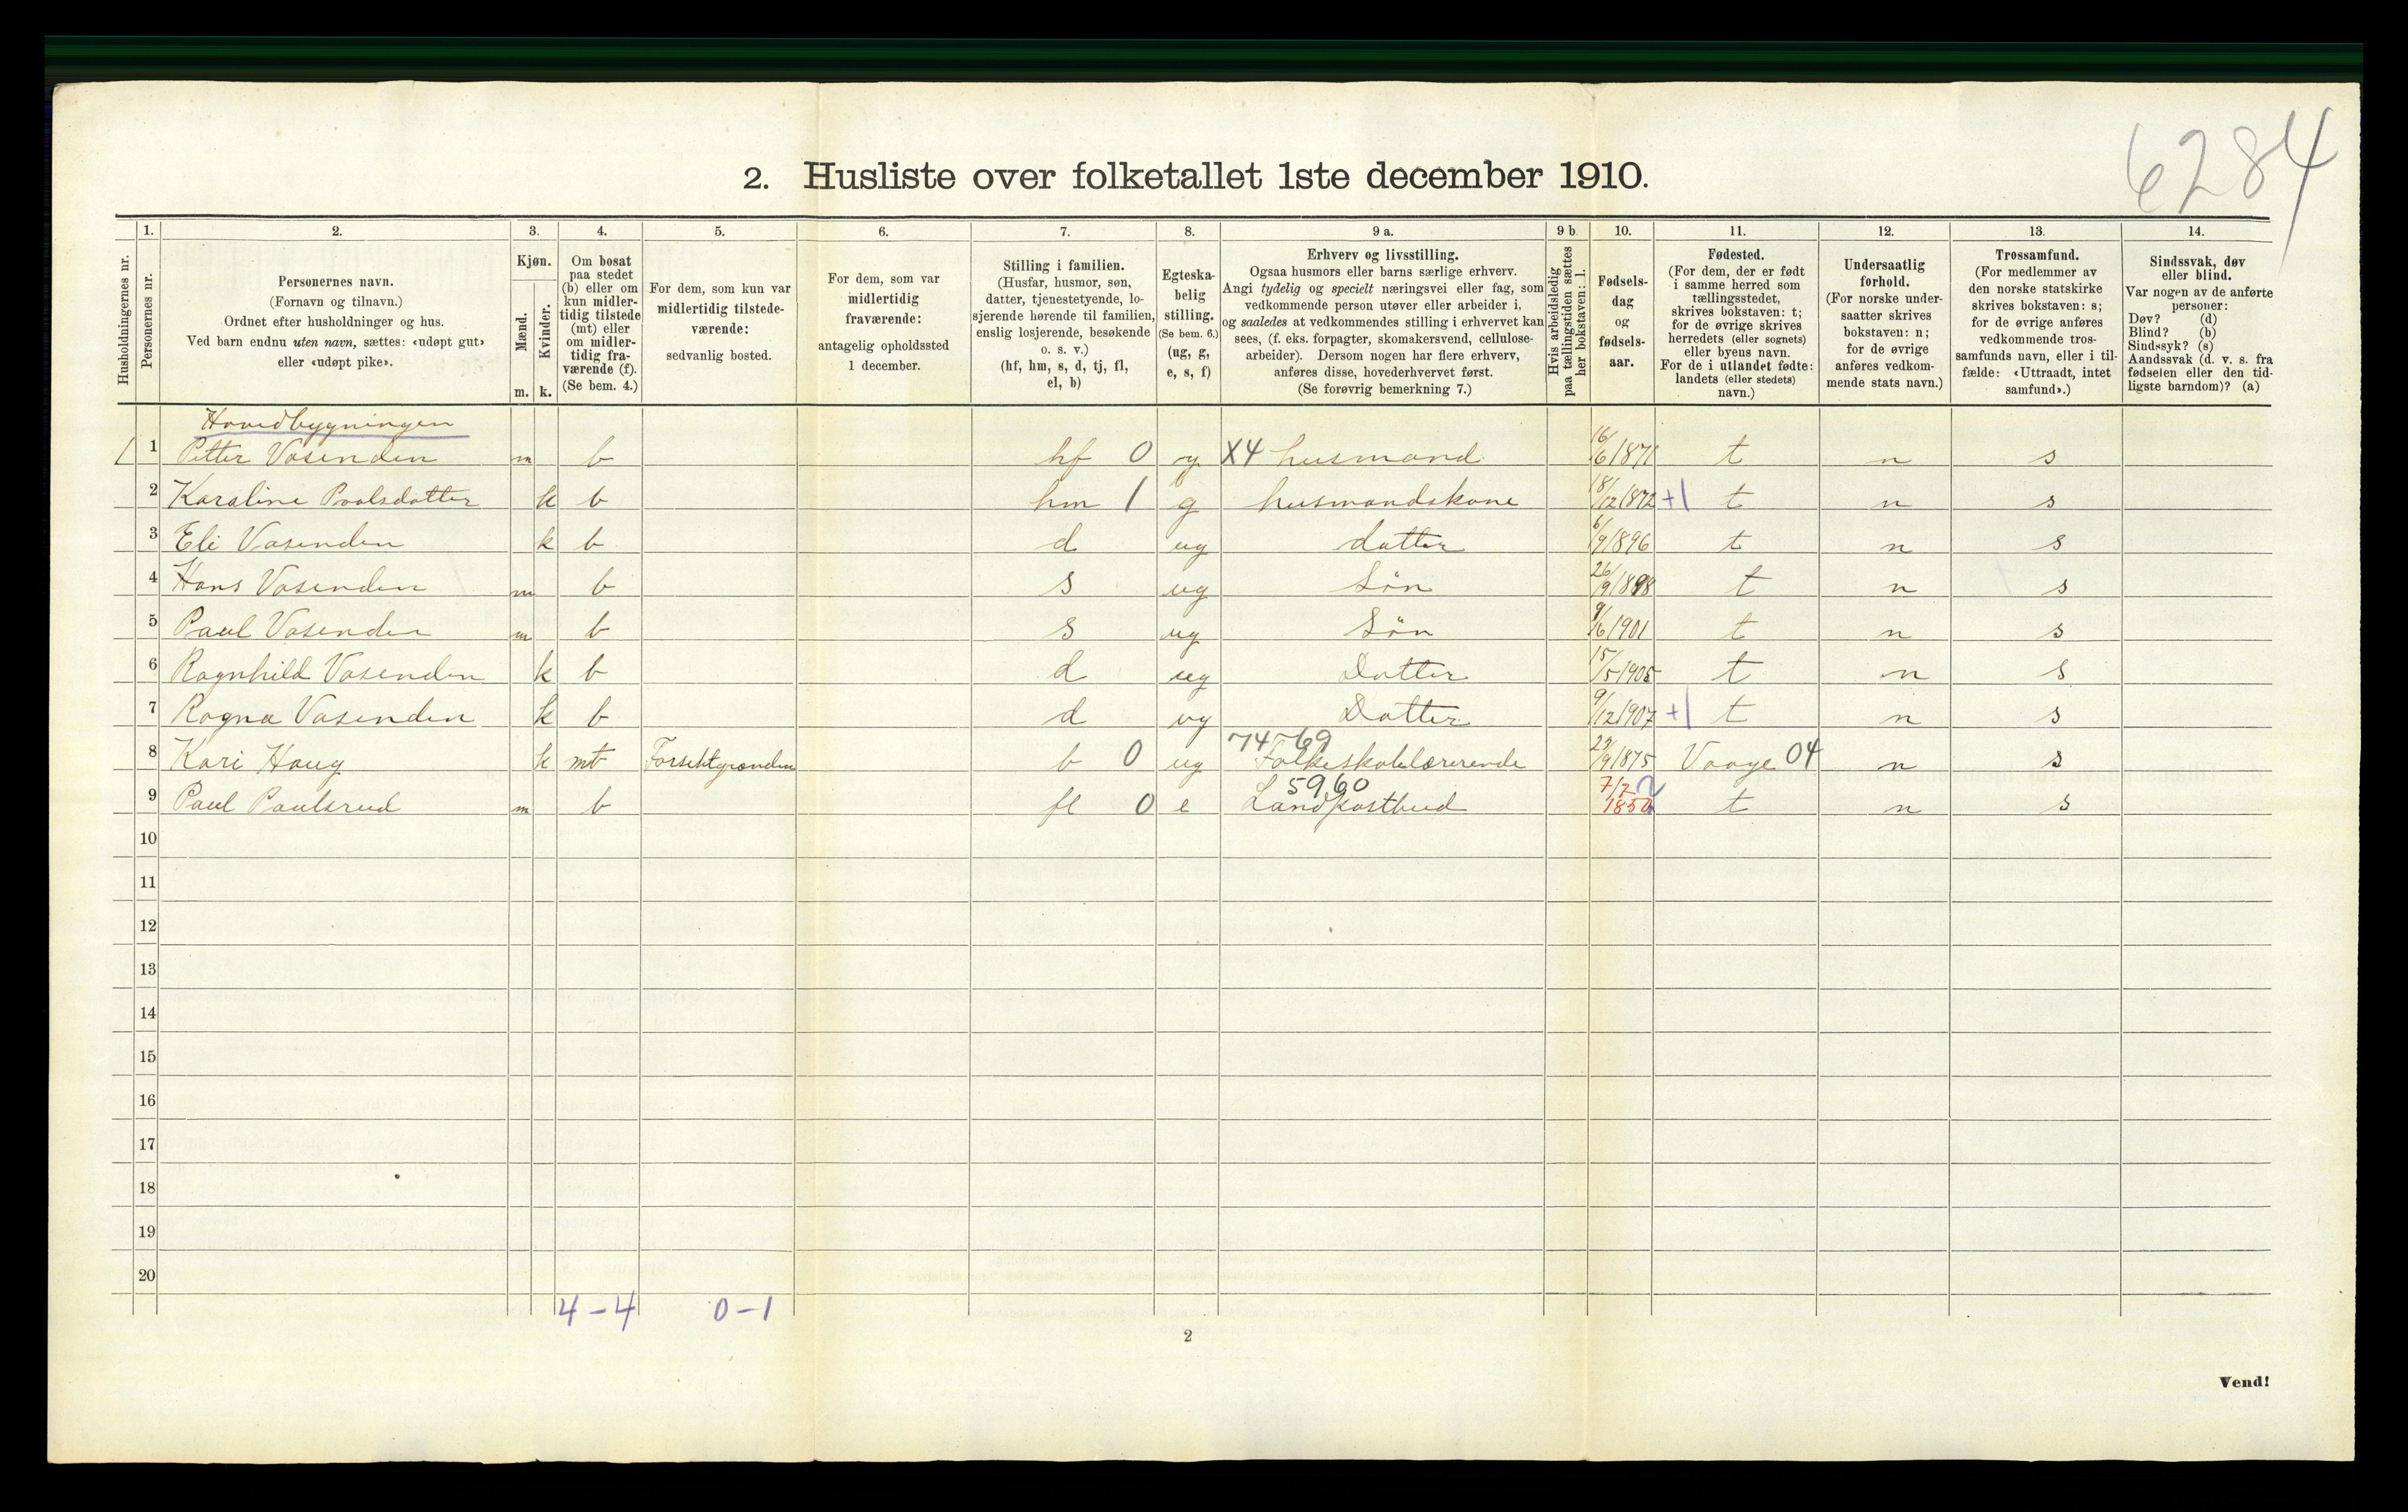 6284
2. Husliste over folketallet 1ste december 1910.
1. 2. 3. 4. 5. 6. 7. 8. 9 a. 9 b. 10. 11. 12. 13. 14.
Husholdningernes nr.
Personernes nr.
Personernes navn.
(Fornavn og tilnavn.)
Ordnet efter husholdninger og hus.
Ved barn endnu uten navn, sættes: «udøpt gut»
eller «udøpt pike».
Kjøn.
Mænd.
Kvinder.
m. k.
Om bosat
paa stedet
(b) eller om
kun midler-
tidig tilstede
(mt) eller
om midler-
tidig fra-
værende (f).
(Se bem. 4.)
For dem, som kun var
midlertidig tilstede-
værende:
sedvanlig bosted.
For dem, som var
midlertidig
fraværende:
antagelig opholdssted
1 december.
Stilling i familien.
(Husfar, husmor, søn,
datter, tjenestetyende, lo-
sjerende hørende til familien,
enslig losjerende, besøkende
o. s. v.)
(hf, hm, s, d, tj, fl,
el, b)
Egteska-
belig
stilling.
(Se bem. 6.)
(ug, g,
e, s, f)
Erhverv og livsstilling.
Ogsaa husmors eller barns særlige erhverv.
Angi tydelig og specielt næringsvei eller fag, som
vedkommende person utøver eller arbeider i,
og saaledes at vedkommendes stilling i erhvervet kan
sees, (f. eks. forpagter, skomakersvend, cellulose-
arbeider). Dersom nogen har flere erhverv,
anføres disse, hovederhvervet først.
(Se forøvrig bemerkning 7.)
Hvis arbeidsledig
paa tællingstiden sættes
her bokstaven: l.
Fødsels-
dag
og
fødsels-
aar.
Fødested.
(For dem, der er født
i samme herred som
tællingsstedet,
skrives bokstaven: t;
for de øvrige skrives
herredets (eller sognets)
eller byens navn.
For de i utlandet fødte:
landets (eller stedets)
navn.)
Undersaatlig
forhold.
(For norske under-
saatter skrives
bokstaven: n;
for de øvrige
anføres vedkom-
mende stats navn.)
Trossamfund.
(For medlemmer av
den norske statskirke
skrives bokstaven: s;
for de øvrige anføres
vedkommende tros-
samfunds navn, eller i til-
fælde: «Uttraadt, intet
samfund».)
Sindssvak, døv
eller blind.
Var nogen av de anførte
personer:
Døv? (d)
Blind? (b)
Sindssyk? (s)
Aandssvak (d. v. s. fra
fødselen eller den tid-
ligste barndom)? (a)
Hovedbygningen
1 1 Petter Vasenden m b hf 0 g X4 husmand 16/6 1871 t n s
2 Karaline Paalsdatter k b hm 1 g husmandskone 18/12 1872 +1 t n s
3 Eli Vasenden k b d ug datter 6/9 1896 t n s
4 Hans Vasenden m b s ug Sön 26/9 1898 t n s
5 Paul Vasenden m b s ug Sön 9/6 1901 t n s
6 Ragnhild Vasenden k b d ug Datter 15/5 1905 t n s
7 Ragna Vasenden k b d ug Datter 9/12 1907 +1 t n s
74-69
8 Kari Haug k mt b 0 ug Folkeskolelærerinde /9 1875 Vaage 04 n s
5960
9 Paul Paulsrud m b fl 0 e Landpostbud 7/7 1850 t n s
10
11
12
13
14
15
16
17
18
19
20
4-4 0-1
2
Vend!